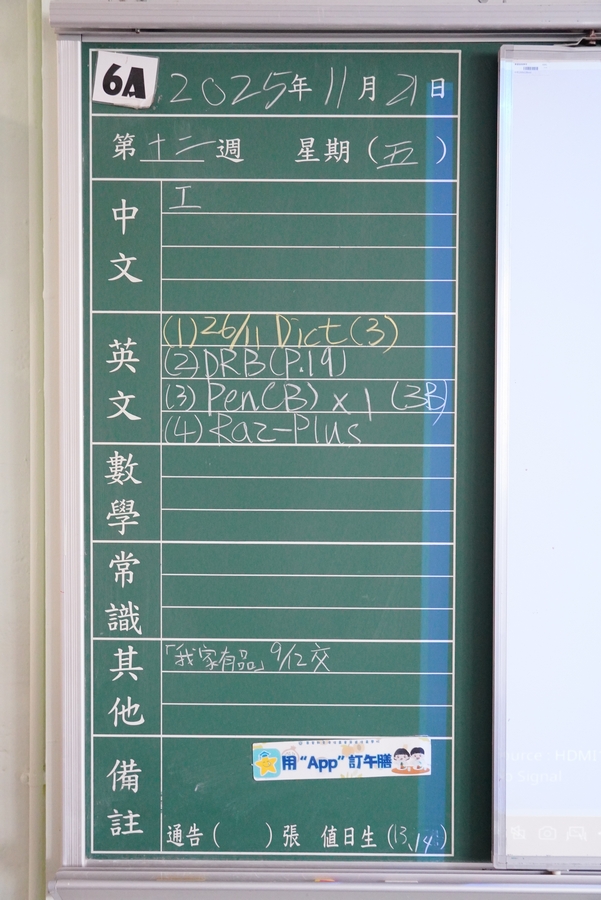 6A 2025年11月21日
第十二週 星期(五)
中文
工
英文
(1) 26/11 Dict (3)
(2) DRB (P.19)
(3) Pen(B) x 1 (3B)
(4) Raz-Plus
數學
常識
其他
「我家有品」9/12交
備註
用“App”訂午膳
通告( )張 值日生(13,14)
Source : HDMI
No Signal